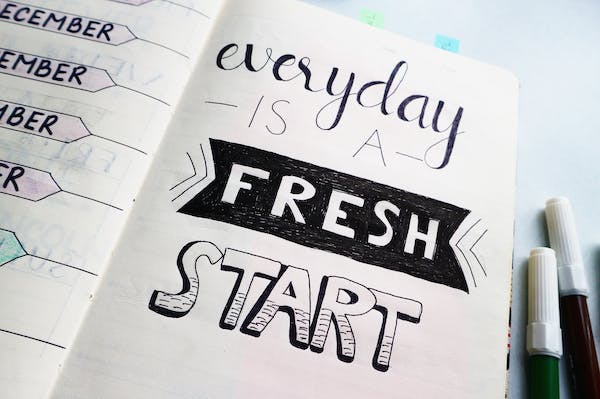 ECEMBER
EMBER
MBER
R
everyday
IS A
FRESH
START